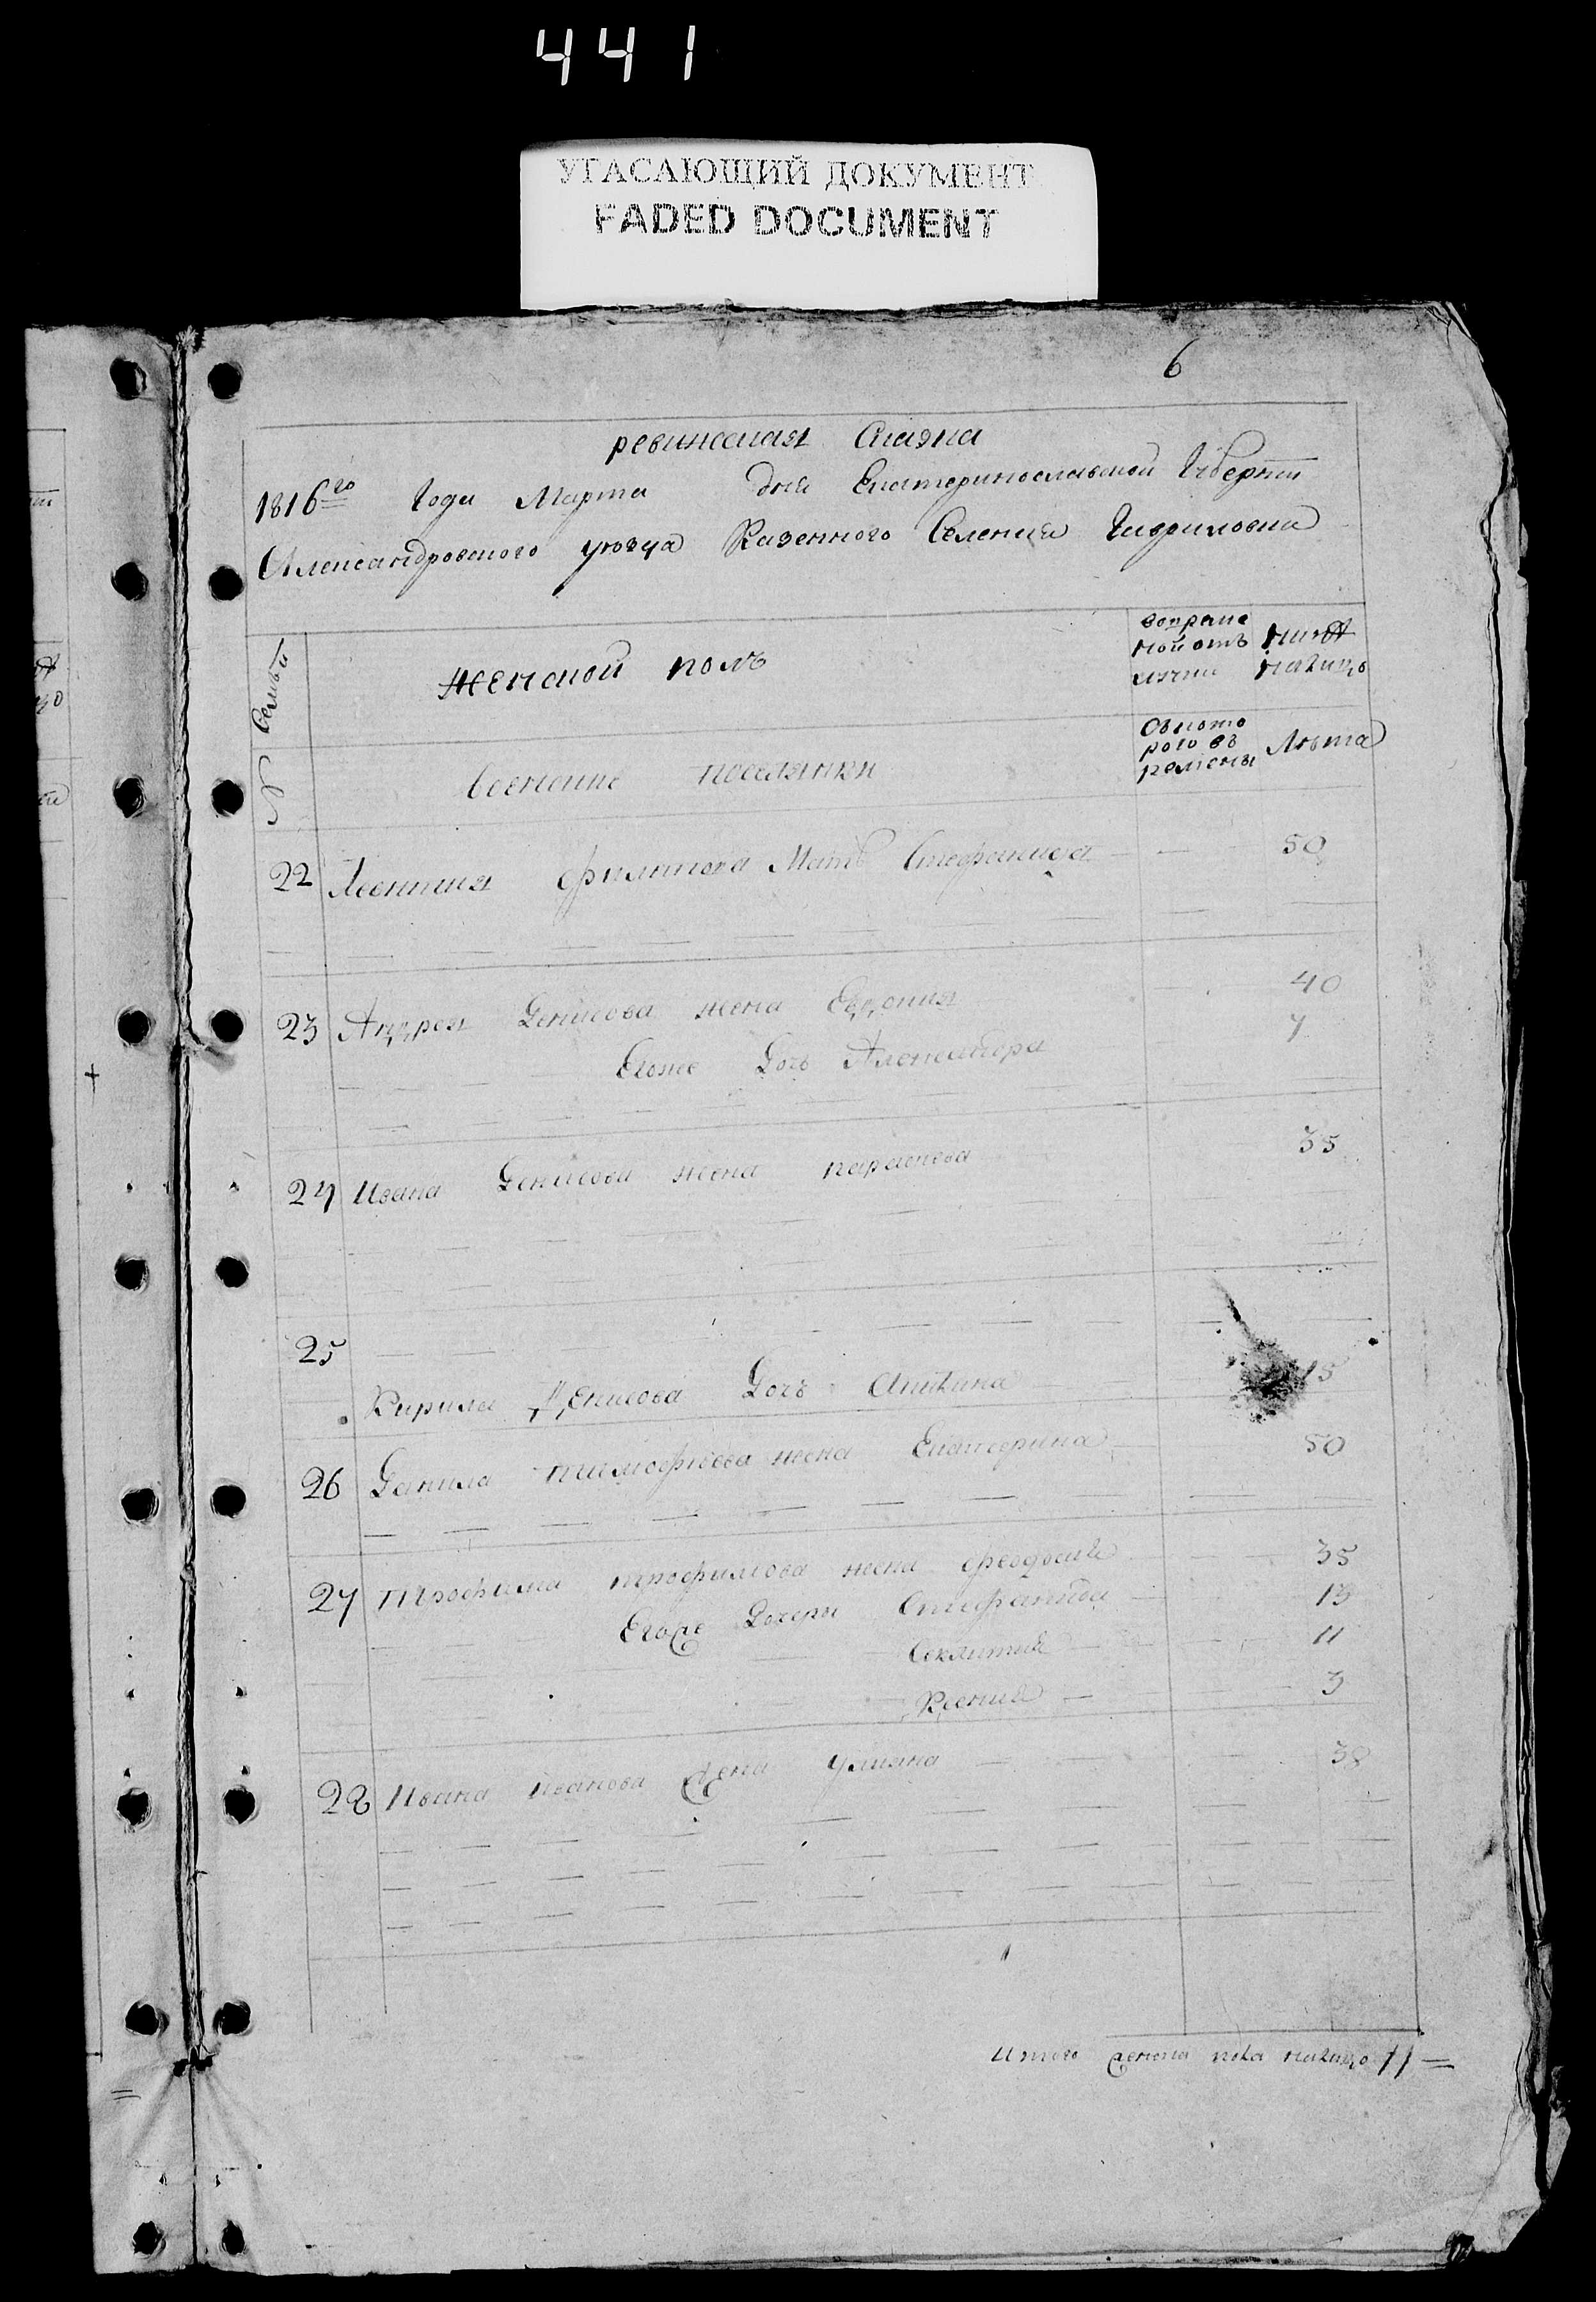 441
УГАСАЮЩИЙ ДОКУМЕНТ
FADED DOCUMENT
6
ревижская Сказка
1816го Года Марта дня Екатеринославской Губернии
Александровского уезда Казенного Селения Гавриловка
№ Семьи
женской полъ
вовреме
нной отъ
лучки
ныне
налицо
военные поселянки
Съкото
рого въ
ремены
Лета
22 Леонтия Филипова Мать Стефанида 50
23 Андрея Денисова жена Евдокия 40
Егоже Дочь Александра 7
24 Ивана Денисова жена параскева 35
25
Кирила Денисова Дочь Акилина 15
26 Данила тимофеева жена Екатерина 50
27 трофима трофимова жена феодосия 35
Егоже Дочери Стефанида 13
Секлития 11
Ксения 3
28 Ивана иванова жена улияна 38
итого женска пола налицо 11